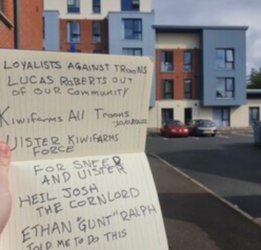 LOYALISTS AGAINST TROONS
LUCAS ROBERTS OUT
OF OUR COMMUNITY
Kiwifarms All Troons
ULSTER KIWIFARMS
FORCE
FOR SNEED
AND ULSTER
HEIL JOSH
THE CORNLORD
ETHAN "GUNT" RALPH
TOLD ME TO DO THIS